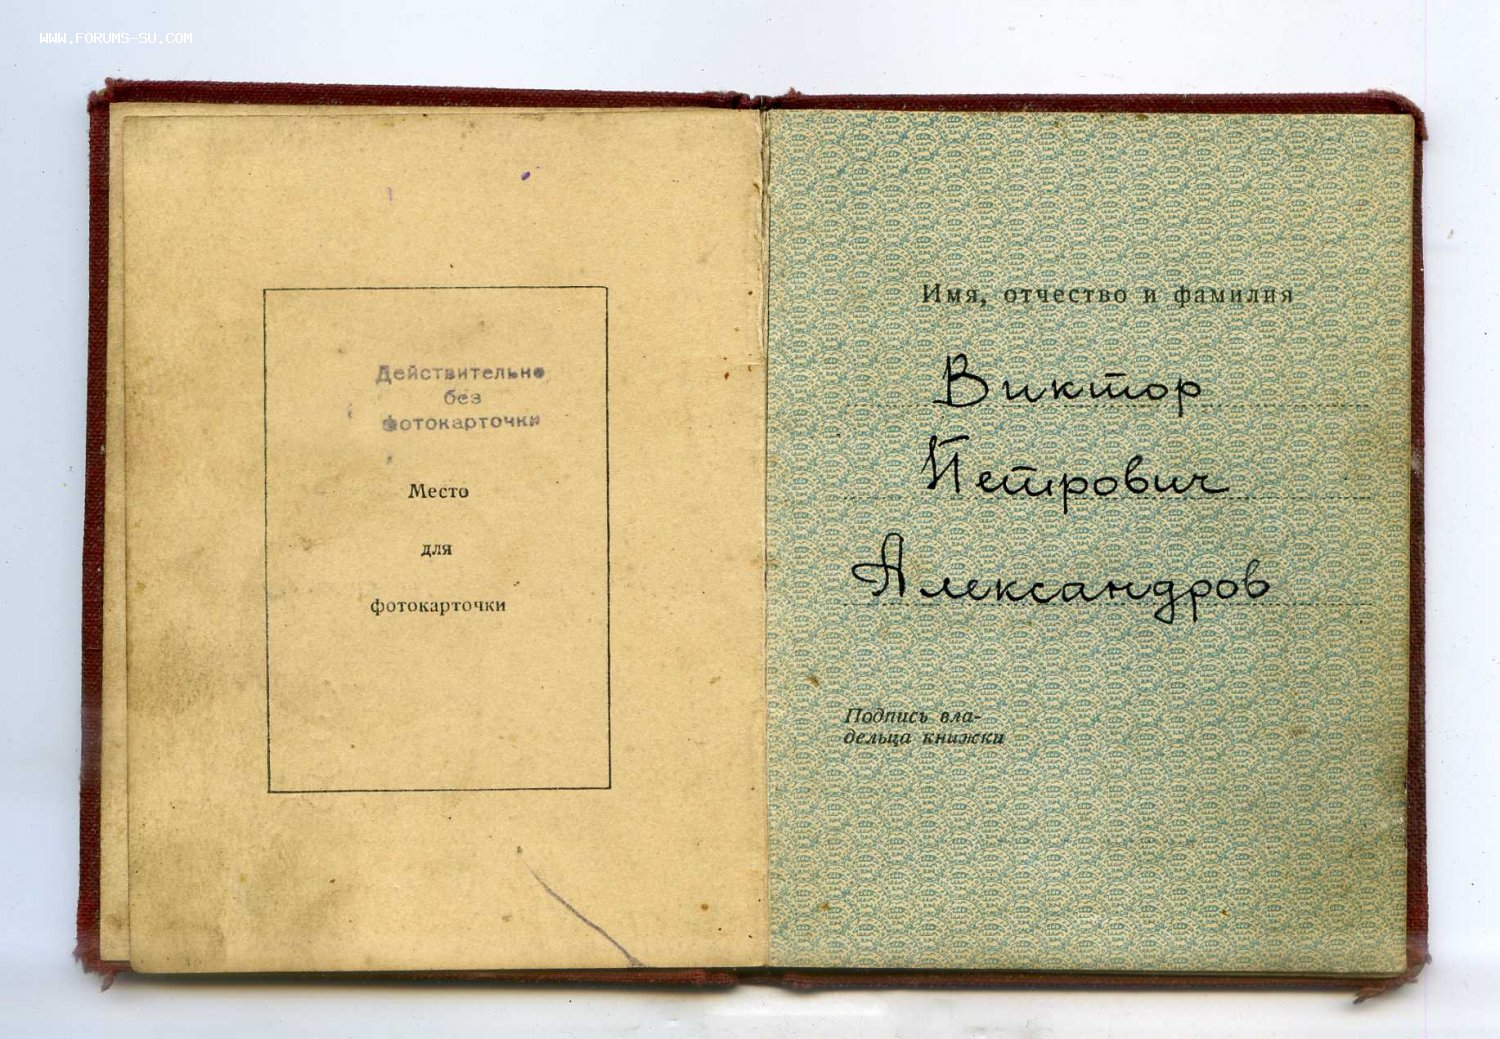 WWW.FORUMS-SU.COM
Действительно
без
фотокарточки
Место
для
фотокарточки
Имя, отчество и фамилия
Виктор
Петрович
Александров
Подпись вла-
дельца книжки